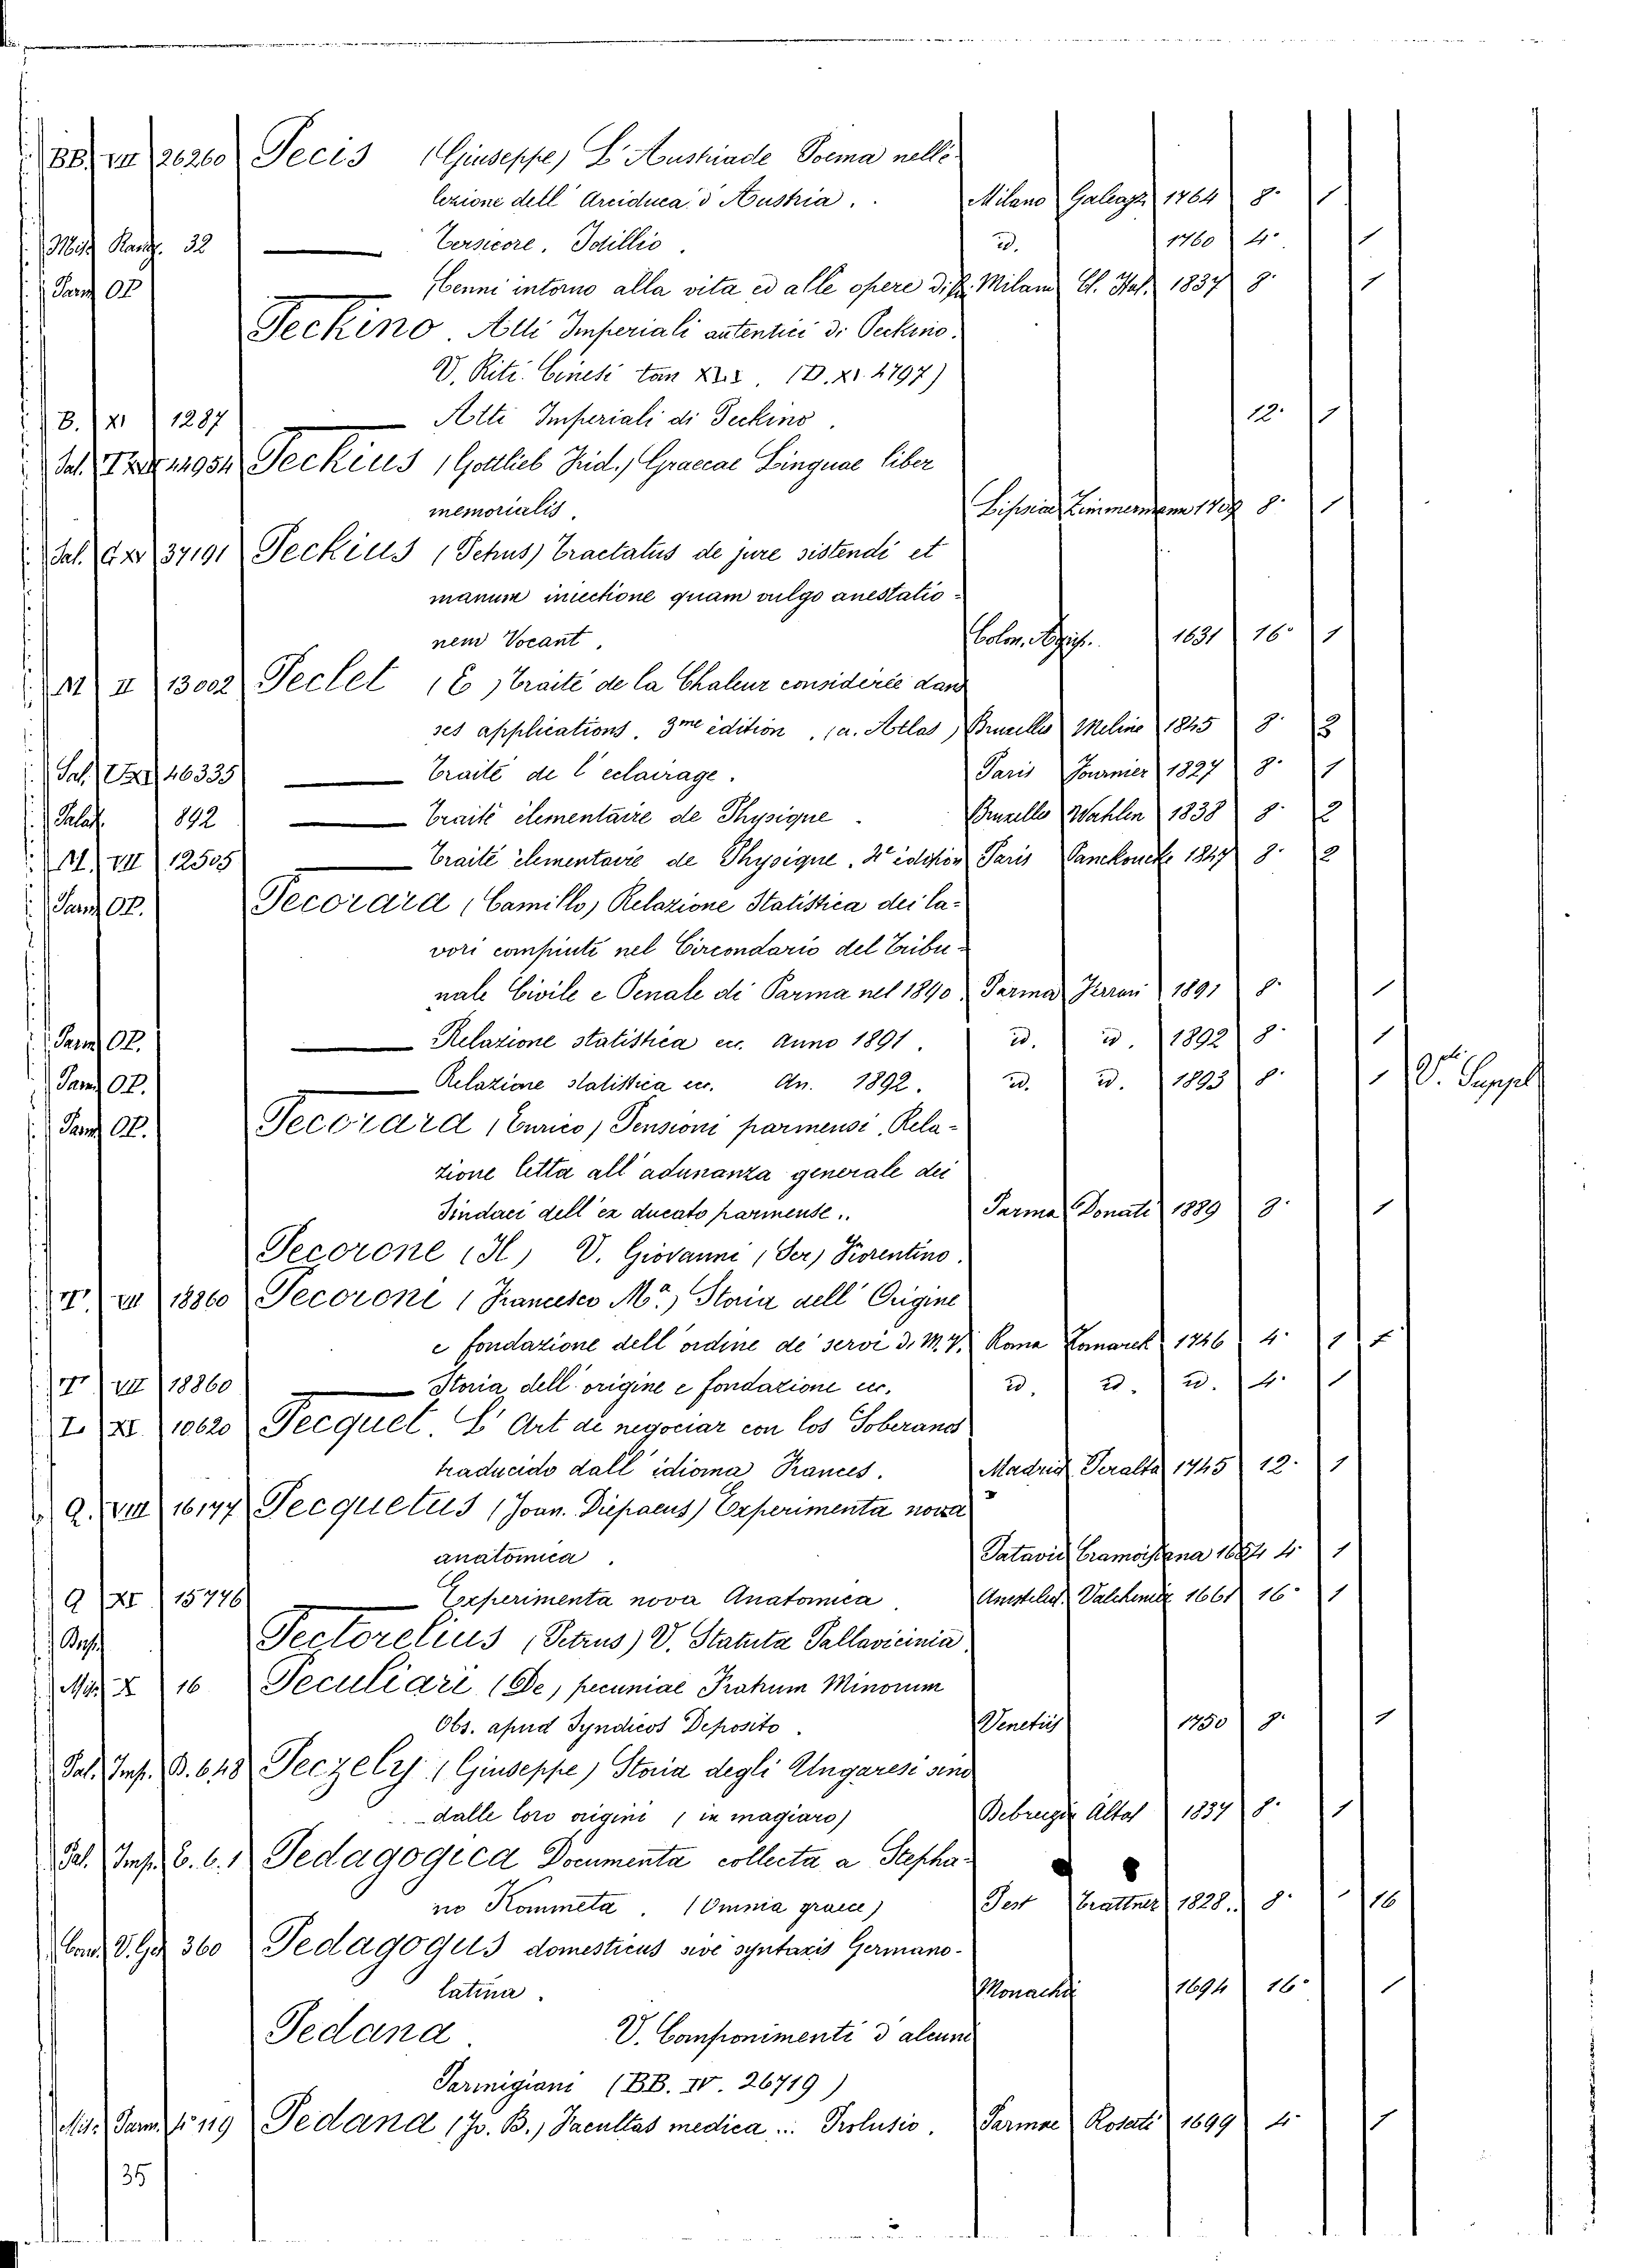 BB. VII 26260 Pecis (Giuseppe) L'Austriade Poema nell'e-
lezione dell' Arciduca d'Austria. Milano Galeazzi 1764 8° 1
Misc. 32 — Versicore, Idillio. id. 1760 4° 1
Parm OP. Cenni intorno alla vita ed alle opere di Milano 1837 8° 1
Peckino. Atti Imperiali autentici di Peckino.
V. Riti Cinesi (B. XI. 1797)
B. XI 1287 — Atti Imperiali di Peckino. 12° 1
Pal. 14954 Peckius (Gottlieb Frid.) Graecae Linguae liber
memorialis. Lipsiae Zimmermann 8° 1
Pal. 37191 Peckius (Petrus) Tractatus de jure sistendi et
manum iniectione quam vulgo arrestatio-
nem Vocant. Colon. Agrip. 1631 16° 1
M II 13002 Peclet (E) Traité de la Chaleur considerée dans
ses applications. 3me edition, (a. Atlas) Bruxelles Meline 1845 8° 3
Pal. 46335 — Traité de l'eclairage. Paris Fournier 1827 8° 1
Palat. 892 — Traité élementaire de Physique. Bruxelles Wahlen 1838 8° 2
M. VII 12505 — Traité élementaire de Physique. 4e édition Paris Panckoucke 1847 8° 2
Parm OP. Pecorard (Camillo) Relazione Statistica dei la-
vori compiuti nel Circondario del Tribu-
nale Civile e Penale di Parma nel 1890 Parma Ferrari 1891 8° 1
Parm OP. — Relazione statistica ecc. Anno 1891. id. id. 1892 8° 1
Parm OP. — Relazione statistica ecc. An. 1892. id. id. 1893 8° 1 V. Suppl
Parm OP. Pecorard (Enrico) Pensioni parmensi. Rela-
zione letta all'adunanza generale dei
Sindaci dell'ex ducato parmense.. Parma Donati 1889 8° 1
Pecorone (Il) V. Giovanni (Ser) Fiorentino.
T. VII 18860 Pecoroni (Francesco Ma.) Storia dell' Origine
e fondazione dell'ordine de' servi di M. V. Roma Komarek 1746 4° 1
T VII 18860 — Storia dell'origine e fondazione ecc. id. id. id. 4° 1
I. XI. 10620 Pecquet. L'Art de negociar con los Soberanos
traducido dall'idioma Frances. Madrid Peralta 1745 12° 1
Q. VIII 16177 Pecquetus (Joan. Diepaeus) Experimenta nova
anatomica. Patavii Cramoisiana 4° 1
Q XI 15776 — Experimenta nova Anatomica. Amstelod. 1661 16° 1
Pectorelius (Petrus) V. Statuta Pallavicinia
Mss. X 16 Peculiari (De) pecuniae Fratrum Minorum
Obs. apud Syndicos Deposito. Venetiis 1750 8° 1
Pal. Imp. B. 648 Peczely (Giuseppe) Storia degli Ungaresi sino
dalle loro origini (in magiaro) 1837 8° 1
Pal. Imp. 6. 6. 1 Pedagogica Documenta collecta a Stepha-
no Kommeta. (Omnia graece) Pest Trattner 1828. 8° 16
360 Pedagogus domesticus sive syntaxis Germano-
latina. Monachii 1694 16° 1
Pedana. V. Componimenti d'alcuni
Parmigiani (BB. IV. 26719)
Mis. Parm. 4° 119 Pedana (Jo. B.) Facultas medica... Prolusio. Parmae Rosati 1699 4° 1
35